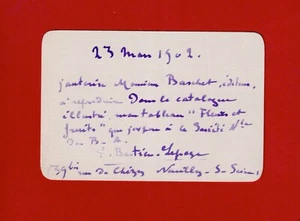 23 Mars 1902.
j'autorise Monsieur Baschet, éditeur,
à reproduire Dans le catalogue
illustré, mon tableau "Fleurs et
fruits" que j'expose à la Société Nle
des B. A.
E. Bastien-Lepage
39bis rue de Chézy Neuilly-S-Seine